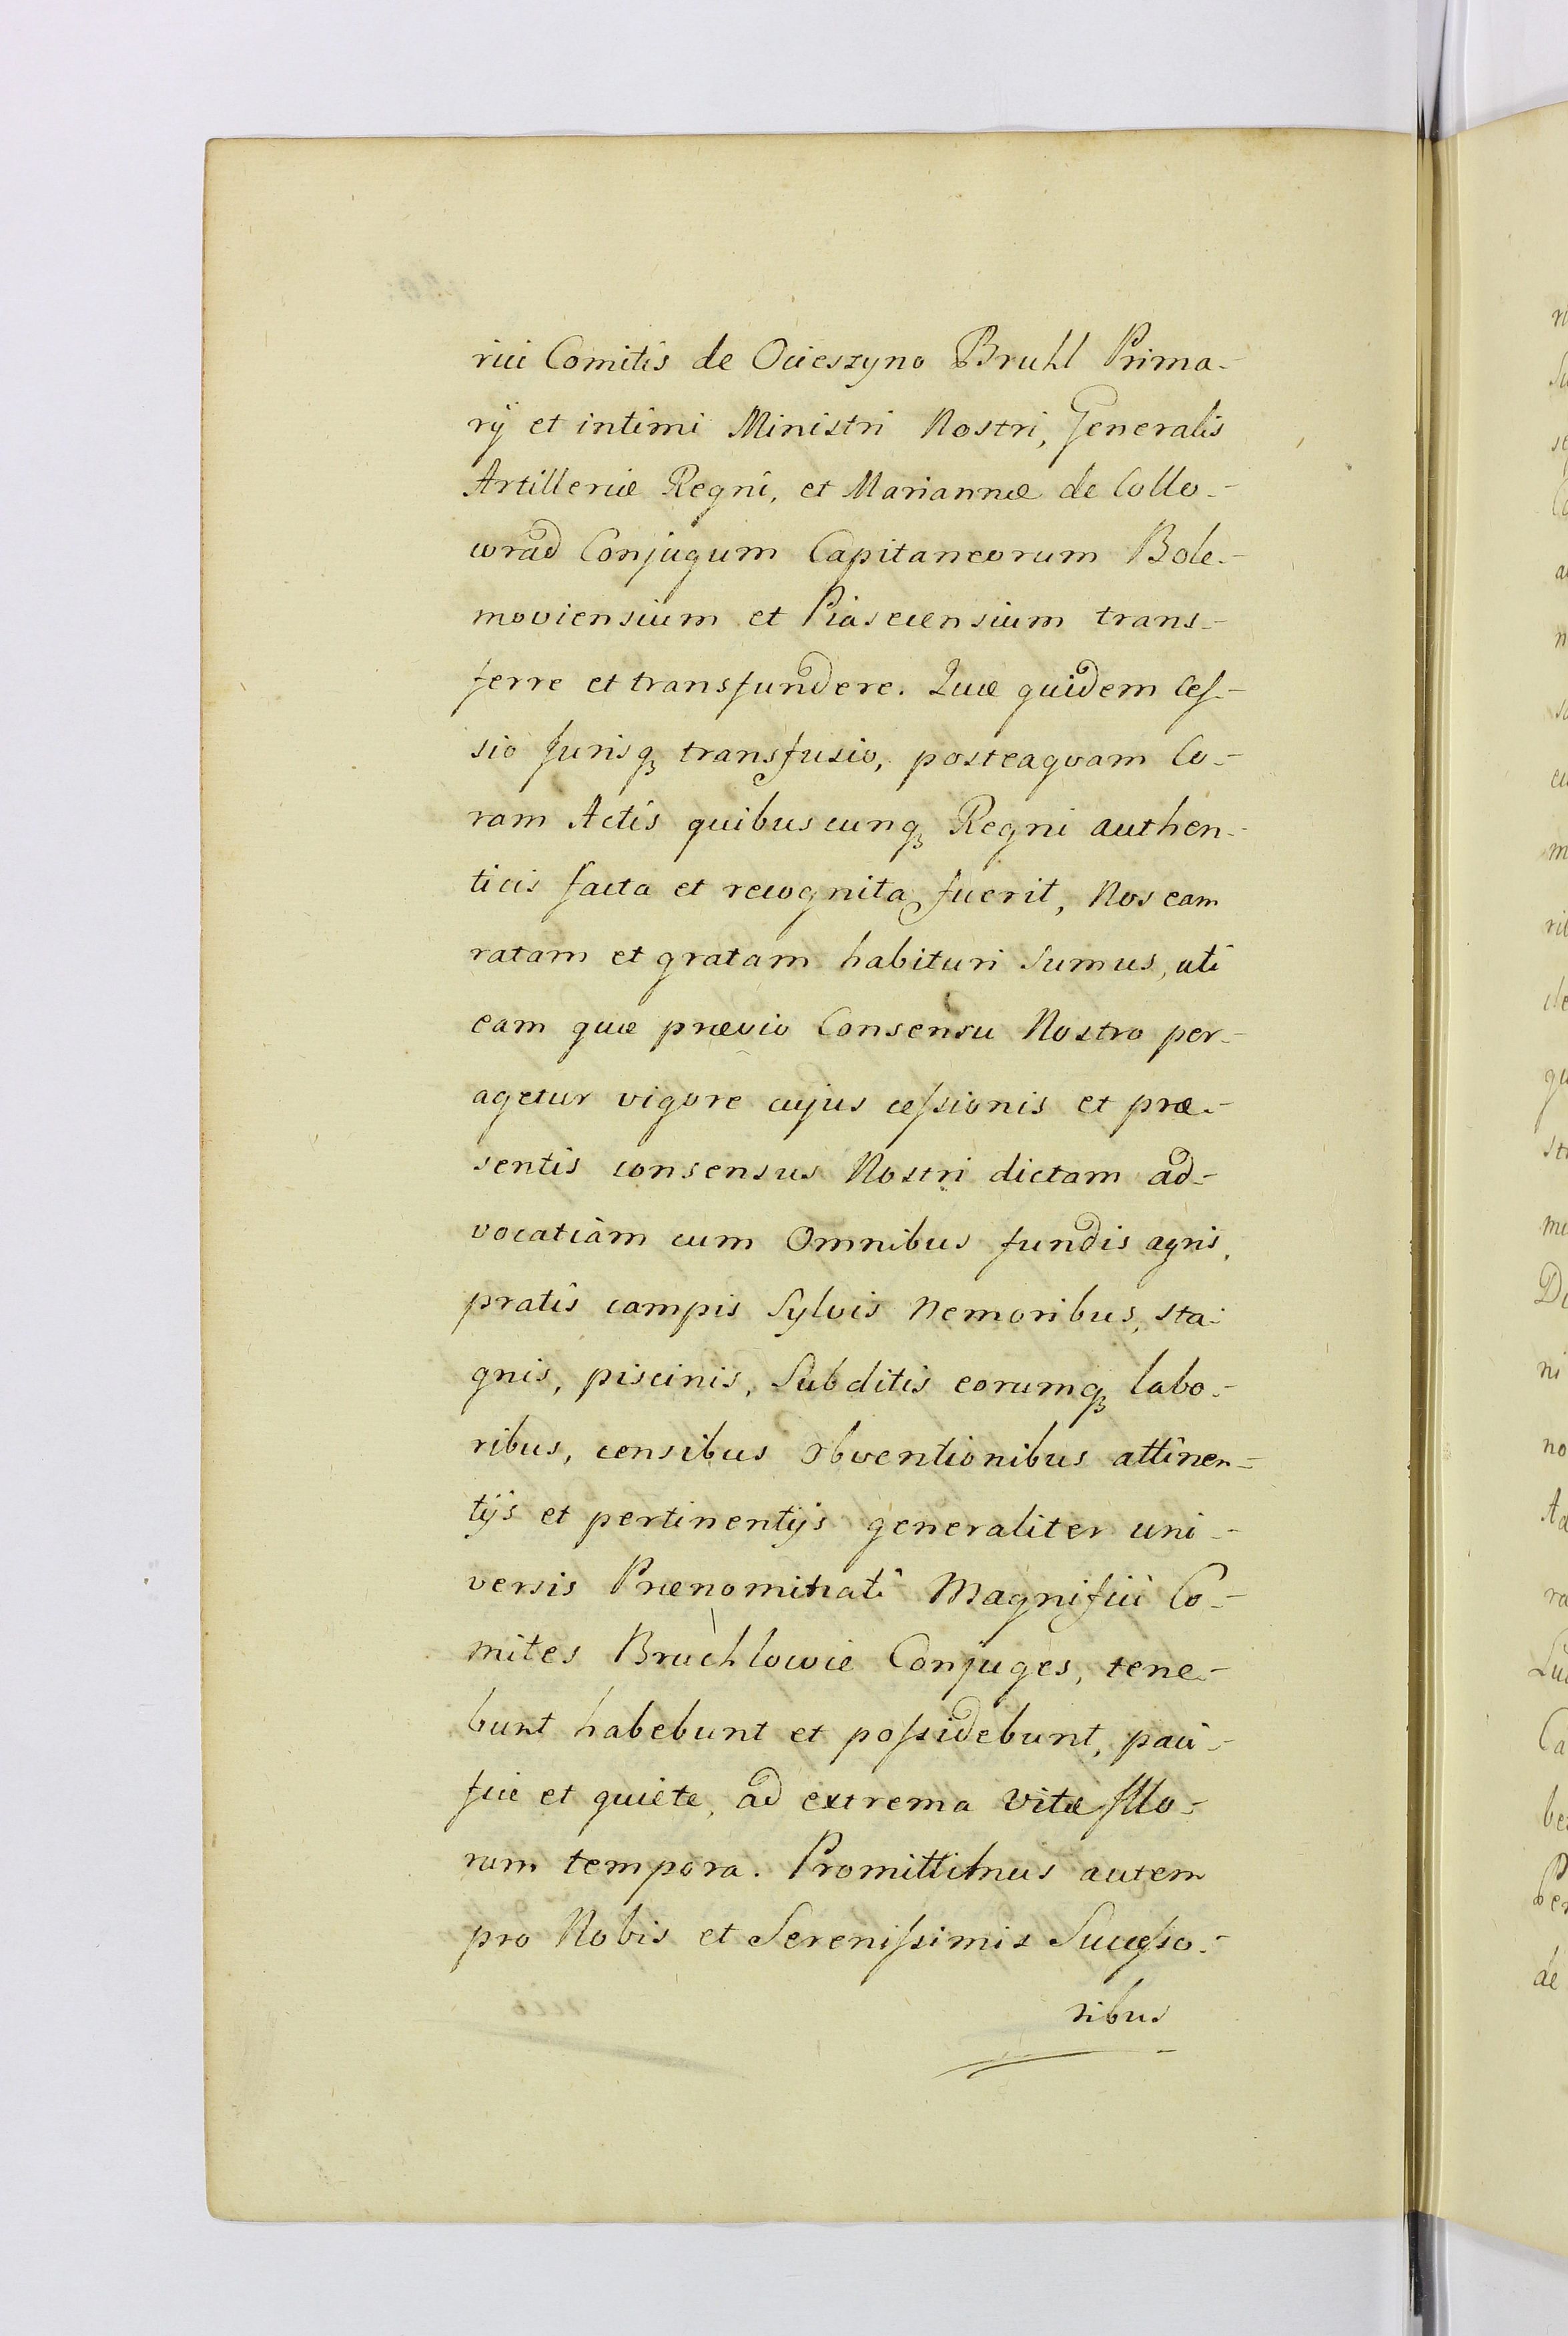 rici Comitis de Ocieszyno Bruhl Prima-
rÿ et intimi Ministri Nostri, Generalis
Artilleriæ Regni, et Mariannæ de Collo-
wrad Conjugum Capitaneorum Bole-
moviensium et Piasecensium trans-
ferre et transfundere. Quæ quidem Ces-
sio Jurisq₃ transfusio, posteaquam Co-
ram Actis quibuscunq₃ Regni authen-
ticis facta et recognita fuerit, Nos eam
ratam et gratam habituri Sumus, uti
eam quæ prævio Consensu Nostro per-
agetur vigore cujus cessionis et præ-
sentis consensus Nostri dictam ad-
vocatiam cum Omnibus fundis agris,
pratis campis Sylvis Nemoribus, sta-
gnis, piscinis, Subditis eorumq₃ labo-
ribus, censibus Obventionibus attinen-
tÿs et pertinentÿs generaliter uni-
versis Prænominati Magnifici Co-
mites Bruchlowie Conjuges, tene-
bunt habebunt et possidebunt, paci-
fice et quiete, ad extrema vitæ Illo-
rum tempora. Promittimus autem
pro Nobis et Serenissimis Successo-
ribus